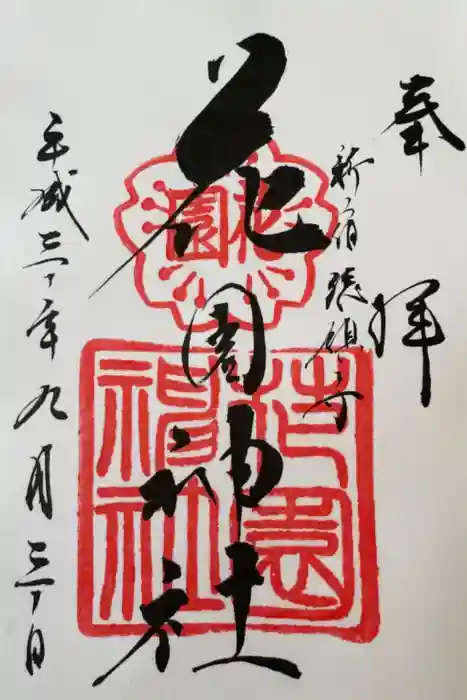 奉拝
新宿総鎮守
花園神社
平成三十年九月三十日
花園
花園神社